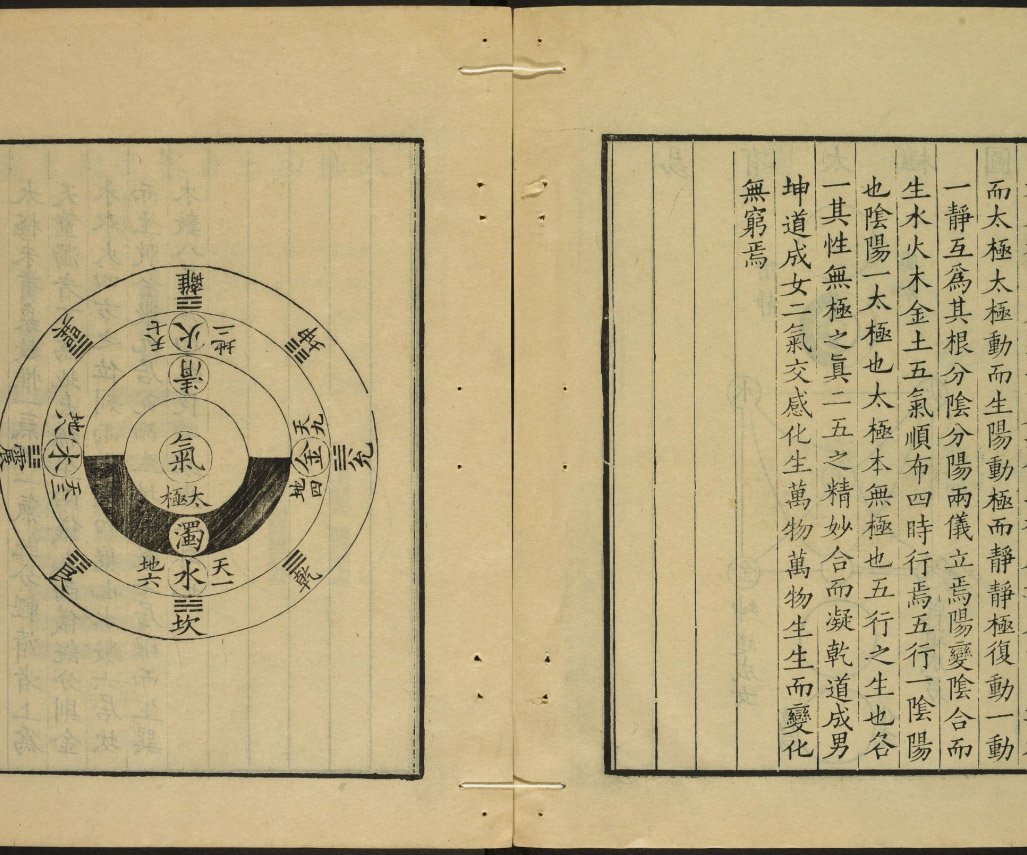 而太極太極動而生陽動極而靜靜極復動一動
一靜互爲其根分陰分陽兩儀立焉陽變陰合而
生水火木金土五氣順布四時行焉五行一陰陽
也陰陽一太極也太極本無極也五行之生也各
一其性無極之眞二五之精妙合而凝乾道成男
坤道成女二氣交感化生萬物萬物生生而變化
無窮焉
離
地二
火
天七
清
坤
兌
天九
金
地四
氣
太極
濁
乾
天一
水
地六
坎
艮
震
天三
木
地八
巽